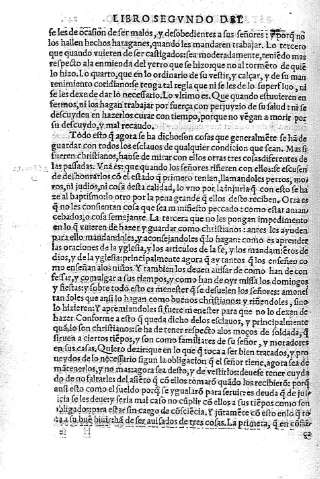 LIBRO SEGVNDO DEL
se les de ocasion de ser malos, y desobedientes a sus señores: y porq̃ no
los hallen hechos haraganes, quando les mandaren trabajar. Lo tercero
que quando vuieren de ser castigados: sea moderadamente, teniēdo mas
respecto ala emienda del yerro que se hizo: que no al tormēto de quiē
lo hizo. Lo quarto, que en lo ordinario de su vestir, y calçar, y de su man
renimiento cotidiano se tenga tal regla que ni se les de lo superfluo, ni
se les dexe de dar lo necessario. Lo vltimo es. Que quando estuuieren en
fermos, ni los hagan trabajar por fuerça con perjuyzio de su salud ni se
descuyden en hazerlos curar con tiempo, porque no vēgan a morir por
su descuydo, y mal recaudo.
Todo esto q̃ agora se ha dicho son cosas que generalmēte se hā de
guardar con todos los esclauos de qualquier condicion que sean. Mas si
fueren christianos, han se de mirar con ellos otras tres cosas diferentes de
las passadas. Vna es: que quando los señores riñeren con ellos: se escusen
de deshonrarlos cō el estado q̃ primero tenian, llamandoles perros, mo
ros, ni judios, ni cosa desta calidad, lo vno por la injuria q̃ con esto se ha
ze al baptismo: lo otro por la pena grande q̃ ellos desto reciben. Otra es
q̃ no les consientan cosa que sea manifiesto peccado: como estar aman
cebados, o cosa semejante. La tercera que no les pongan impedimento
en lo q̃ vuieren de hazer y guardar como christianos: antes les ayuden
para ello mandandoles, y aconsejandoles q̃ lo hagan: como es aprender
las oraciones de la yglesia, y los articulos de la fe, y los mandamiētos de
dios, y de la yglesia: principalmente agora q̃ ay tantos q̃ los enseñen co
mo enseñan alos niños. Y tambien los deuen auisar de como han de con
fessar, y comulgar a sus tiempos, y como han de oyr missa los domingos
y fiestas: y sobre todo esto es menester q̃ se desuelen los señores: amones
tandoles que ansi lo hagan como buenos christianos: y riñendoles, sino
lo hizieren: Y apremiandoles si fuere menester para que no lo dexen de
hazer. Conforme a esto q̃ queda dicho delos esclauos, y principalmente
quā
lo son christianos: se ha de tener respecto alos moços de soldada, q̃
siruen a ciertos tiēpos, y son como familiares de su señor, y moradores
en sus casas. Quiero dezir que en lo que q̃ toca a ser bien tratados, y pro
ueydos de lo necessario segun la obligacion q̃ el señor tiene, agora sea de
mātenerlos, y no mas: agora sea desto, y de vestirlos: deuese tener cuyda
do de no faltarles del assiēto q̃ con ellos tomarō quādo los recibierō: porq̃
ansi esto como el sueldo porq̃ se ygualarō para seruir es deuda q̃ de jus
ticia se les deue: y seria mal caso no cūplir cō ellos a sus tiēpos como son
obligados: para estar sin cargo de cōsciēcia. Y jūtamēte cō esto en lo q̃ to